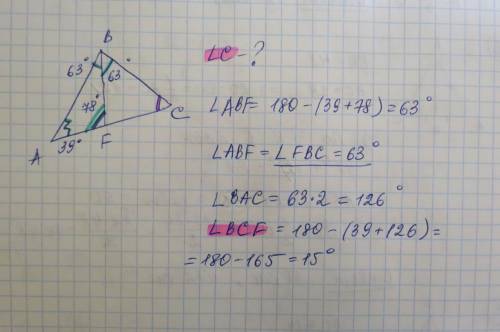 B
63°
63°
78°
C
A
39°
F
LC - ?
LABF = 180 - (39 + 78) = 63°
LABF = LFBC = 63°
LBAC = 63 · 2 = 126°
LBCF = 180 - (39 + 126) =
= 180 - 165 = 15°